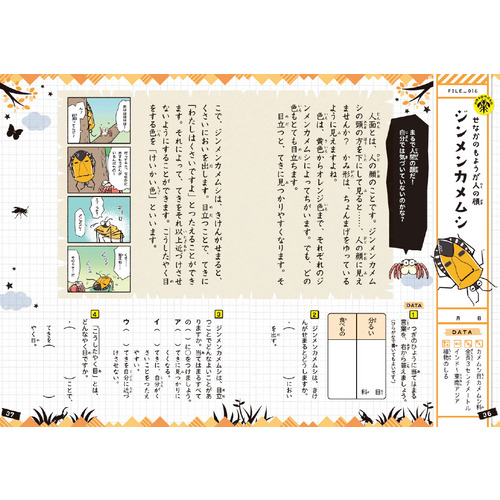 FILE_016
せなかのもようが人の顔
ジンメンカメムシ
月 日
DATA
カメムシ目カメムシ科
全長3センチメートル
インド〜東南アジア
植物のしる
まるで人間の顔だ!
自分では気づいていないのかな?
人面とは、人の顔のことです。ジンメンカメム
シの頭の方を下にして見ると……、人の顔に見え
ませんか? かみ形は、ちょんまげをゆっている
ように見えますよね。
色は、黄色からオレンジ色まで、それぞれのジ
ンメンカメムシによってちがいます。でも、どの
色もとても目立ちます。
目立つと、てきに見つかりやすくなります。そ
こで、ジンメンカメムシは、きけんがせまると、
くさいにおいを出します。目立つことで、てきに
「わたしはくさいですよ」とつたえることができ
ます。それによって、てきをそれ以上近づけさせ
ないようにすることができます。こうしたやく目
をする色を「けいかい色」といいます。
DATA
1 つぎのひょうに当てはまる
言葉を、右から答えましょう。
分るい
目
科
食べもの
2 ジンメンカメムシは、きけ
んがせまるとどうしますか。
( )におい
3 ジンメンカメムシは、目立
つことでどんなよいことがあ
りますか。当てはまるすべて
の( )に○をつけましょう。
ア( )てきに見つかりに
くくなる。
イ( )てきに、自分がく
さいことを
ウ( )てきを自分に近づ
けさせない。
4 「こうしたやく目」とは、
どんなやく目ですか。
( )ことで、
てきを( )
やく目。
36
37